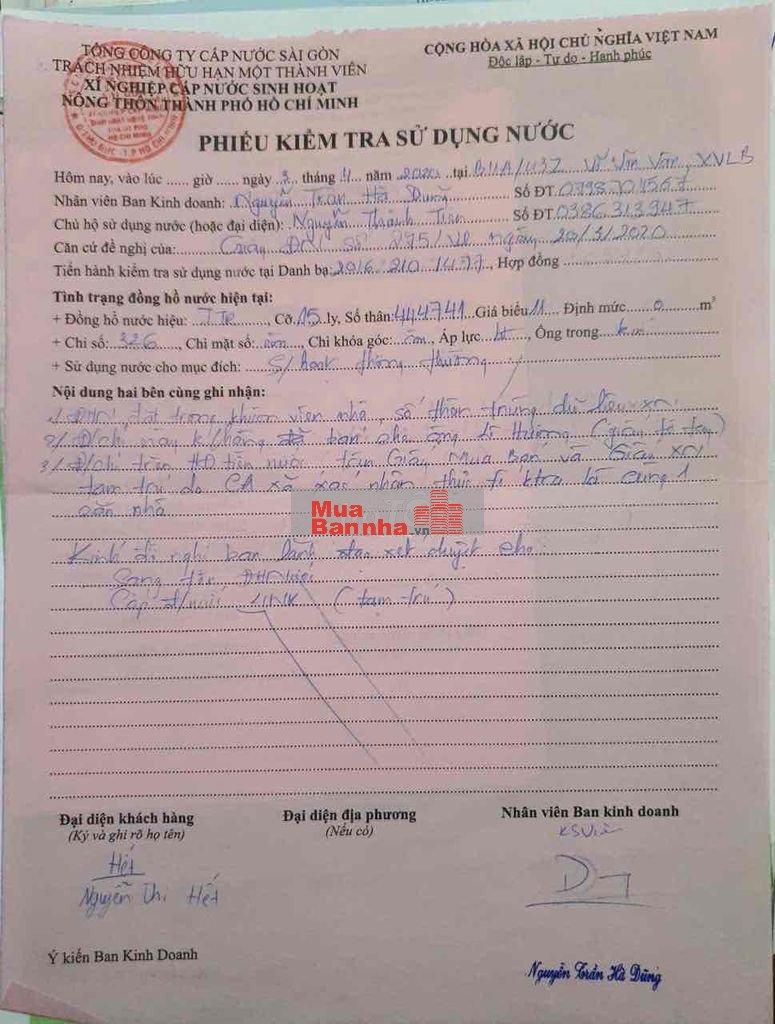 TỔNG CÔNG TY CẤP NƯỚC SÀI GÒN
TRÁCH NHIỆM HỮU HẠN MỘT THÀNH VIÊN
XÍ NGHIỆP CẤP NƯỚC SINH HOẠT
NÔNG THÔN THÀNH PHỐ HỒ CHÍ MINH
CỘNG HÒA XÃ HỘI CHỦ NGHĨA VIỆT NAM
Độc lập - Tự do - Hạnh phúc
PHIẾU KIỂM TRA SỬ DỤNG NƯỚC
Hôm nay, vào lúc ...... giờ ...... ngày 3 tháng 4 năm 2020 tại B11A/437 Võ Văn Vân, XVLB
Nhân viên Ban Kinh doanh: Nguyễn Trần Hà Dũng Số ĐT
Chủ hộ sử dụng nước (hoặc đại diện): Nguyễn Thành Số ĐT 0386313947
Căn cứ đề nghị của: số 895/ ngày 20/3/2020
Tiến hành kiểm tra sử dụng nước tại Danh bạ: 2016 210 1477, Hợp đồng
Tình trạng đồng hồ nước hiện tại:
+ Đồng hồ nước hiệu: , Cỡ 15 ly, Số thân: 444741 Giá biểu 11 Định mức 0 m³
+ Chỉ số: 326, Chì mặt số: , Chì khóa góc: , Áp lực , Ống trong
+ Sử dụng nước cho mục đích: S/hoạt thông thường
Nội dung hai bên cùng ghi nhận:
1/ ĐHN đặt trong khuôn viên nhà, số thân trùng dữ liệu
2/ Đ/chỉ này bán nhà ông (giấy tờ tay)
3/ Đ/chỉ trên HĐ tiền nước, trên Giấy Mua Bán và Giấy XN
tạm trú do CA xã xác nhận thực tế ktra là cùng 1
căn nhà
Mua
Bannha.vn
Kính đề nghị ban lãnh đạo xét duyệt cho
Sang tên ĐHN
Cấp đ/mức (tạm trú)
Đại diện khách hàng
(Ký và ghi rõ họ tên)
Đại diện địa phương
(Nếu có)
Nhân viên Ban kinh doanh
Hết
Nguyễn Thị Hết
Ý kiến Ban Kinh Doanh
Nguyễn Trần Hà Dũng